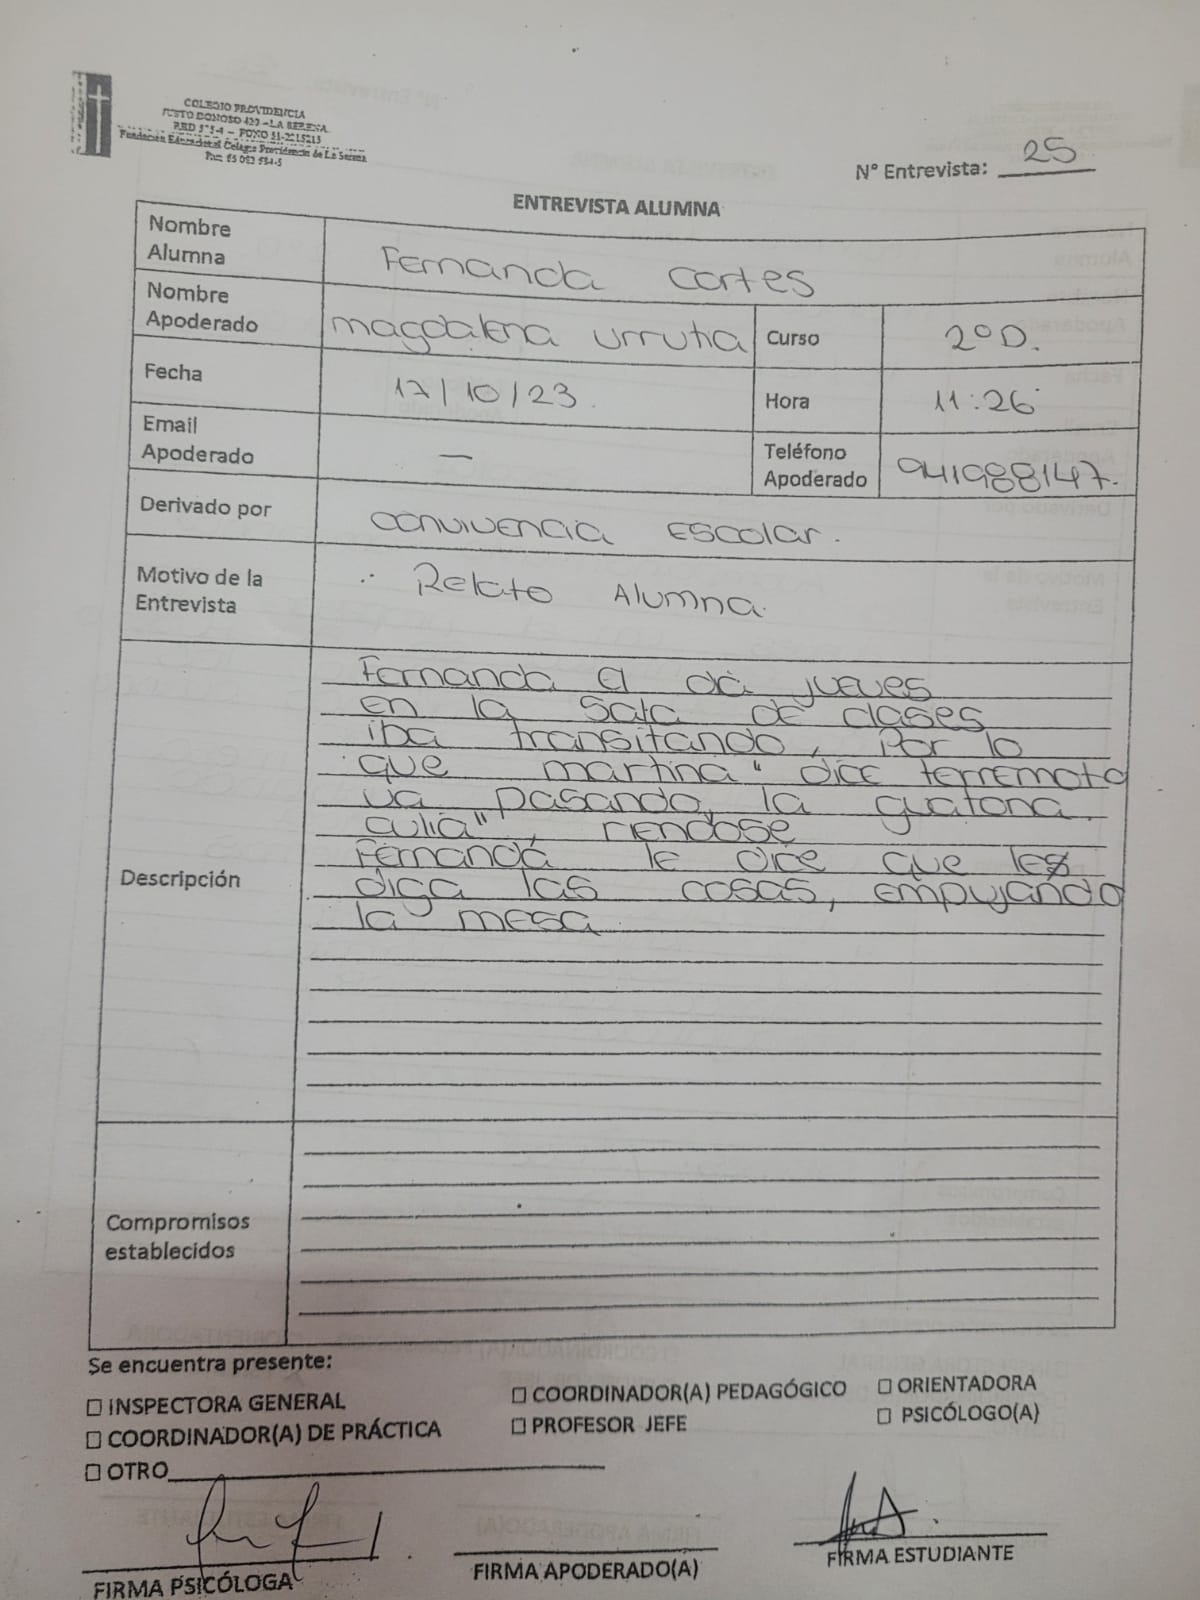 COLEGIO PROVIDENCIA
JUSTO DONOSO 420 – LA SERENA
Fundación Educacional Colegio Providencia de La Serena
N° Entrevista: 25
ENTREVISTA ALUMNA
Nombre Alumna Fernanda Cortes
Nombre Apoderado magdalena urrutia Curso 2°D.
Fecha 17/10/23. Hora 11:26
Email Apoderado — Teléfono Apoderado 941988147.
Derivado por convivencia Escolar.
Motivo de la Entrevista Relato Alumna.
Descripción
Fernanda el dia jueves
en la sala de clases
iba transitando, Por lo
que martina "dice terremoto
va pasando, la guatona
culia", riendose
Fernanda le dice que les
diga las cosas, empujando
la mesa
Compromisos establecidos
Se encuentra presente:
☐ INSPECTORA GENERAL ☐ COORDINADOR(A) PEDAGÓGICO ☐ ORIENTADORA
☐ COORDINADOR(A) DE PRÁCTICA ☐ PROFESOR JEFE ☐ PSICÓLOGO(A)
☐ OTRO
FIRMA PSICÓLOGA FIRMA APODERADO(A) FIRMA ESTUDIANTE